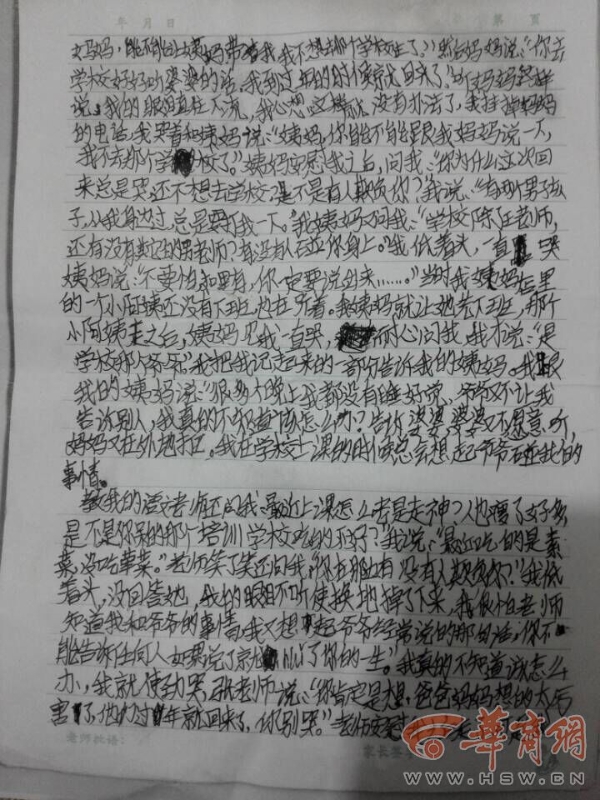 年 月 日 第 页
妈妈,能不能让姨妈带着我,我不想去那个学校住了。"然后妈妈说:"你去
学校好好听婆婆的话,我到过年的时候就回来了。"听妈妈这样
说,我的眼泪直往下流,我心想这样就没有办法了,我挂掉妈妈
的电话,我哭着和姨妈说:"姨妈,你能不能跟我妈妈说一下,
我不去那个学校了。"姨妈安慰我之后,问我:"你为什么这次回
来总是哭,还不想去学校,是不是有人欺负你?"我说:"有两个男孩
子,从我身边过总是打我一下。"我姨妈又问我:"学校除任老师,
还有没有其它的男老师?有没有人碰你身上。"我低着头,一直哭
姨妈说:"不要怕和害,你一定要说出来……。"当时我姨妈店里
的一个小阿姨还没有下班,她在听着。我姨妈就让她先下班,那个
小阿姨走之后,姨妈见我一直哭,耐心问我,我才说:"是
学校那个爷爷"我把我记起来的一部分告诉我的姨妈。我跟
我的姨妈说:"很多天晚上我都没有睡好觉,爷爷又不让我
告诉别人,我真的不知道该怎么办?告诉婆婆,婆婆又不愿意听,
妈妈又在外地打工。我在学校上课的时候总会想起爷爷碰我的
事情。
教我的语文老师还问我:最近上课怎么老是走神?人也瘦了好多
是不是你的那个培训学校吃的不好?我说:"最近吃的是素
菜,没吃荤菜。"老师笑了笑还问我:"你在那边有没有人欺负你?"我低
着头,没回答她,我的眼泪不听使换地掉了下来,我很怕老师
知道我和爷爷的事情,我又想起爷爷经常说的那句话,你不
能告诉任何人如果说了就 了你的一生。"我真的不知道该怎么
办,我就使劲哭,张老师说:"你肯定是想爸爸妈妈想的太厉
害了,他们过年就回来了,你别哭。"老师安
老师批语: 家长签
华商网
WWW.HSW.CN